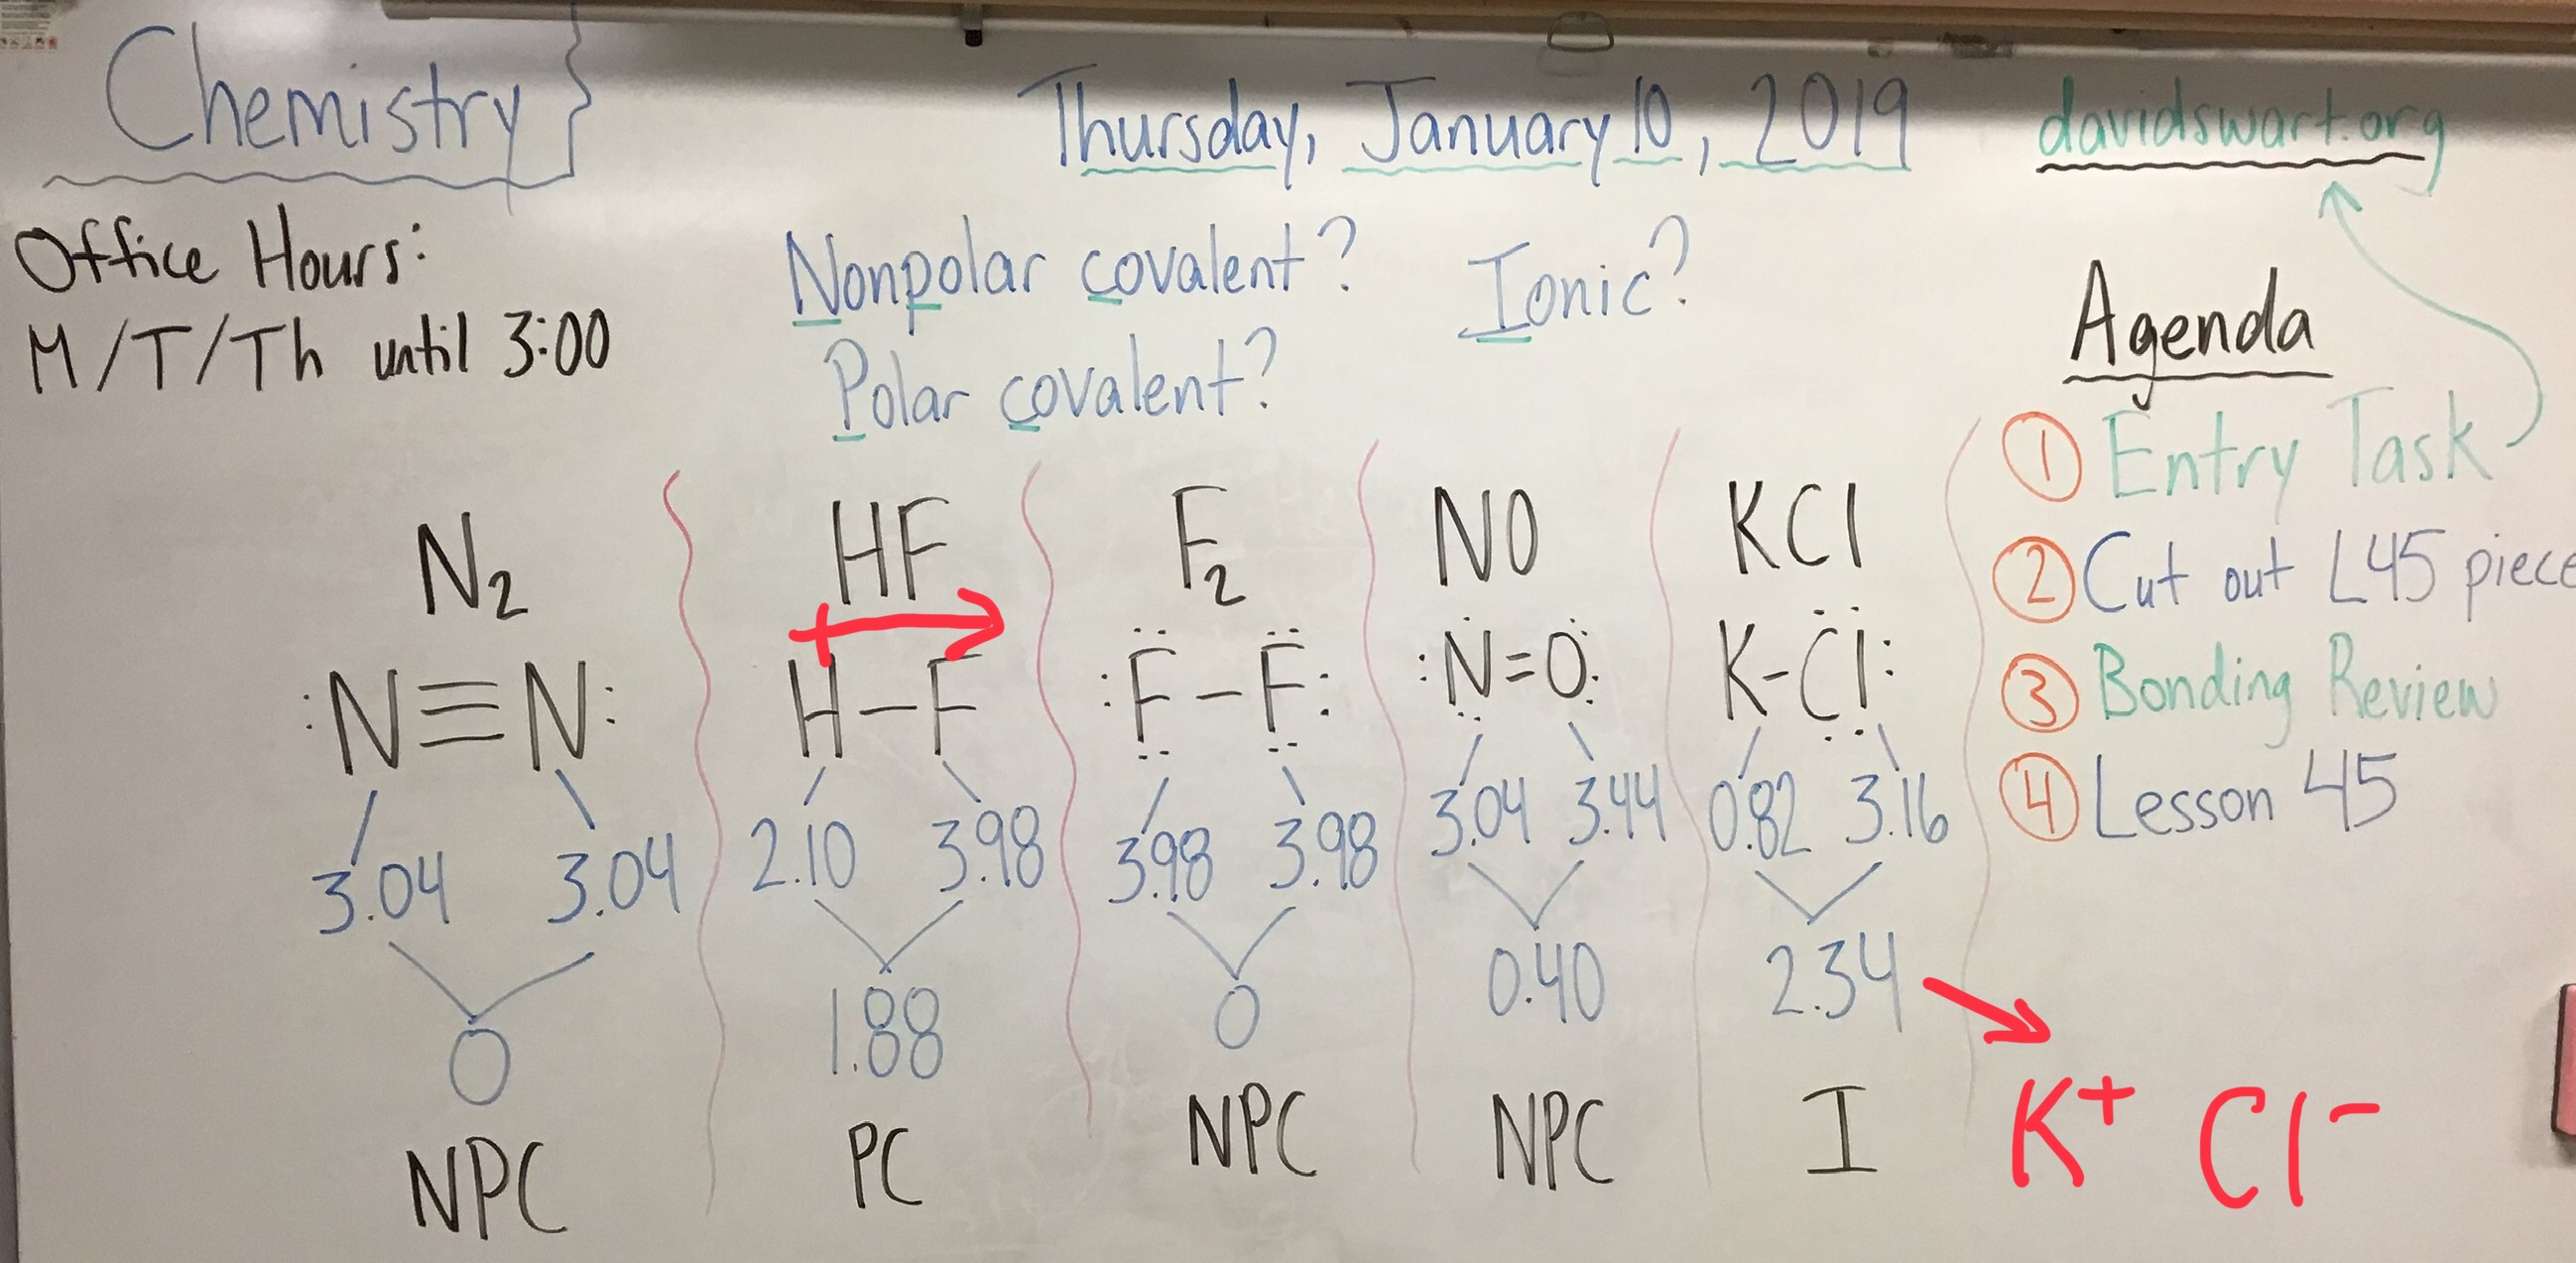 Chemistry
Thursday, January 10, 2019
davidswart.org
Office Hours:
M/T/Th until 3:00
Nonpolar covalent?
Ionic?
Polar covalent?
Agenda
① Entry Task
② Cut out L45 piece
③ Bonding Review
④ Lesson 45
N₂
:N≡N:
3.04 3.04
0
NPC
HF
H-F
2.10 3.98
1.88
PC
F₂
:F-F:
3.98 3.98
0
NPC
NO
:N=O:
3.04 3.44
0.40
NPC
KCl
K-Cl:
0.82 3.16
2.34
I
K⁺ Cl⁻